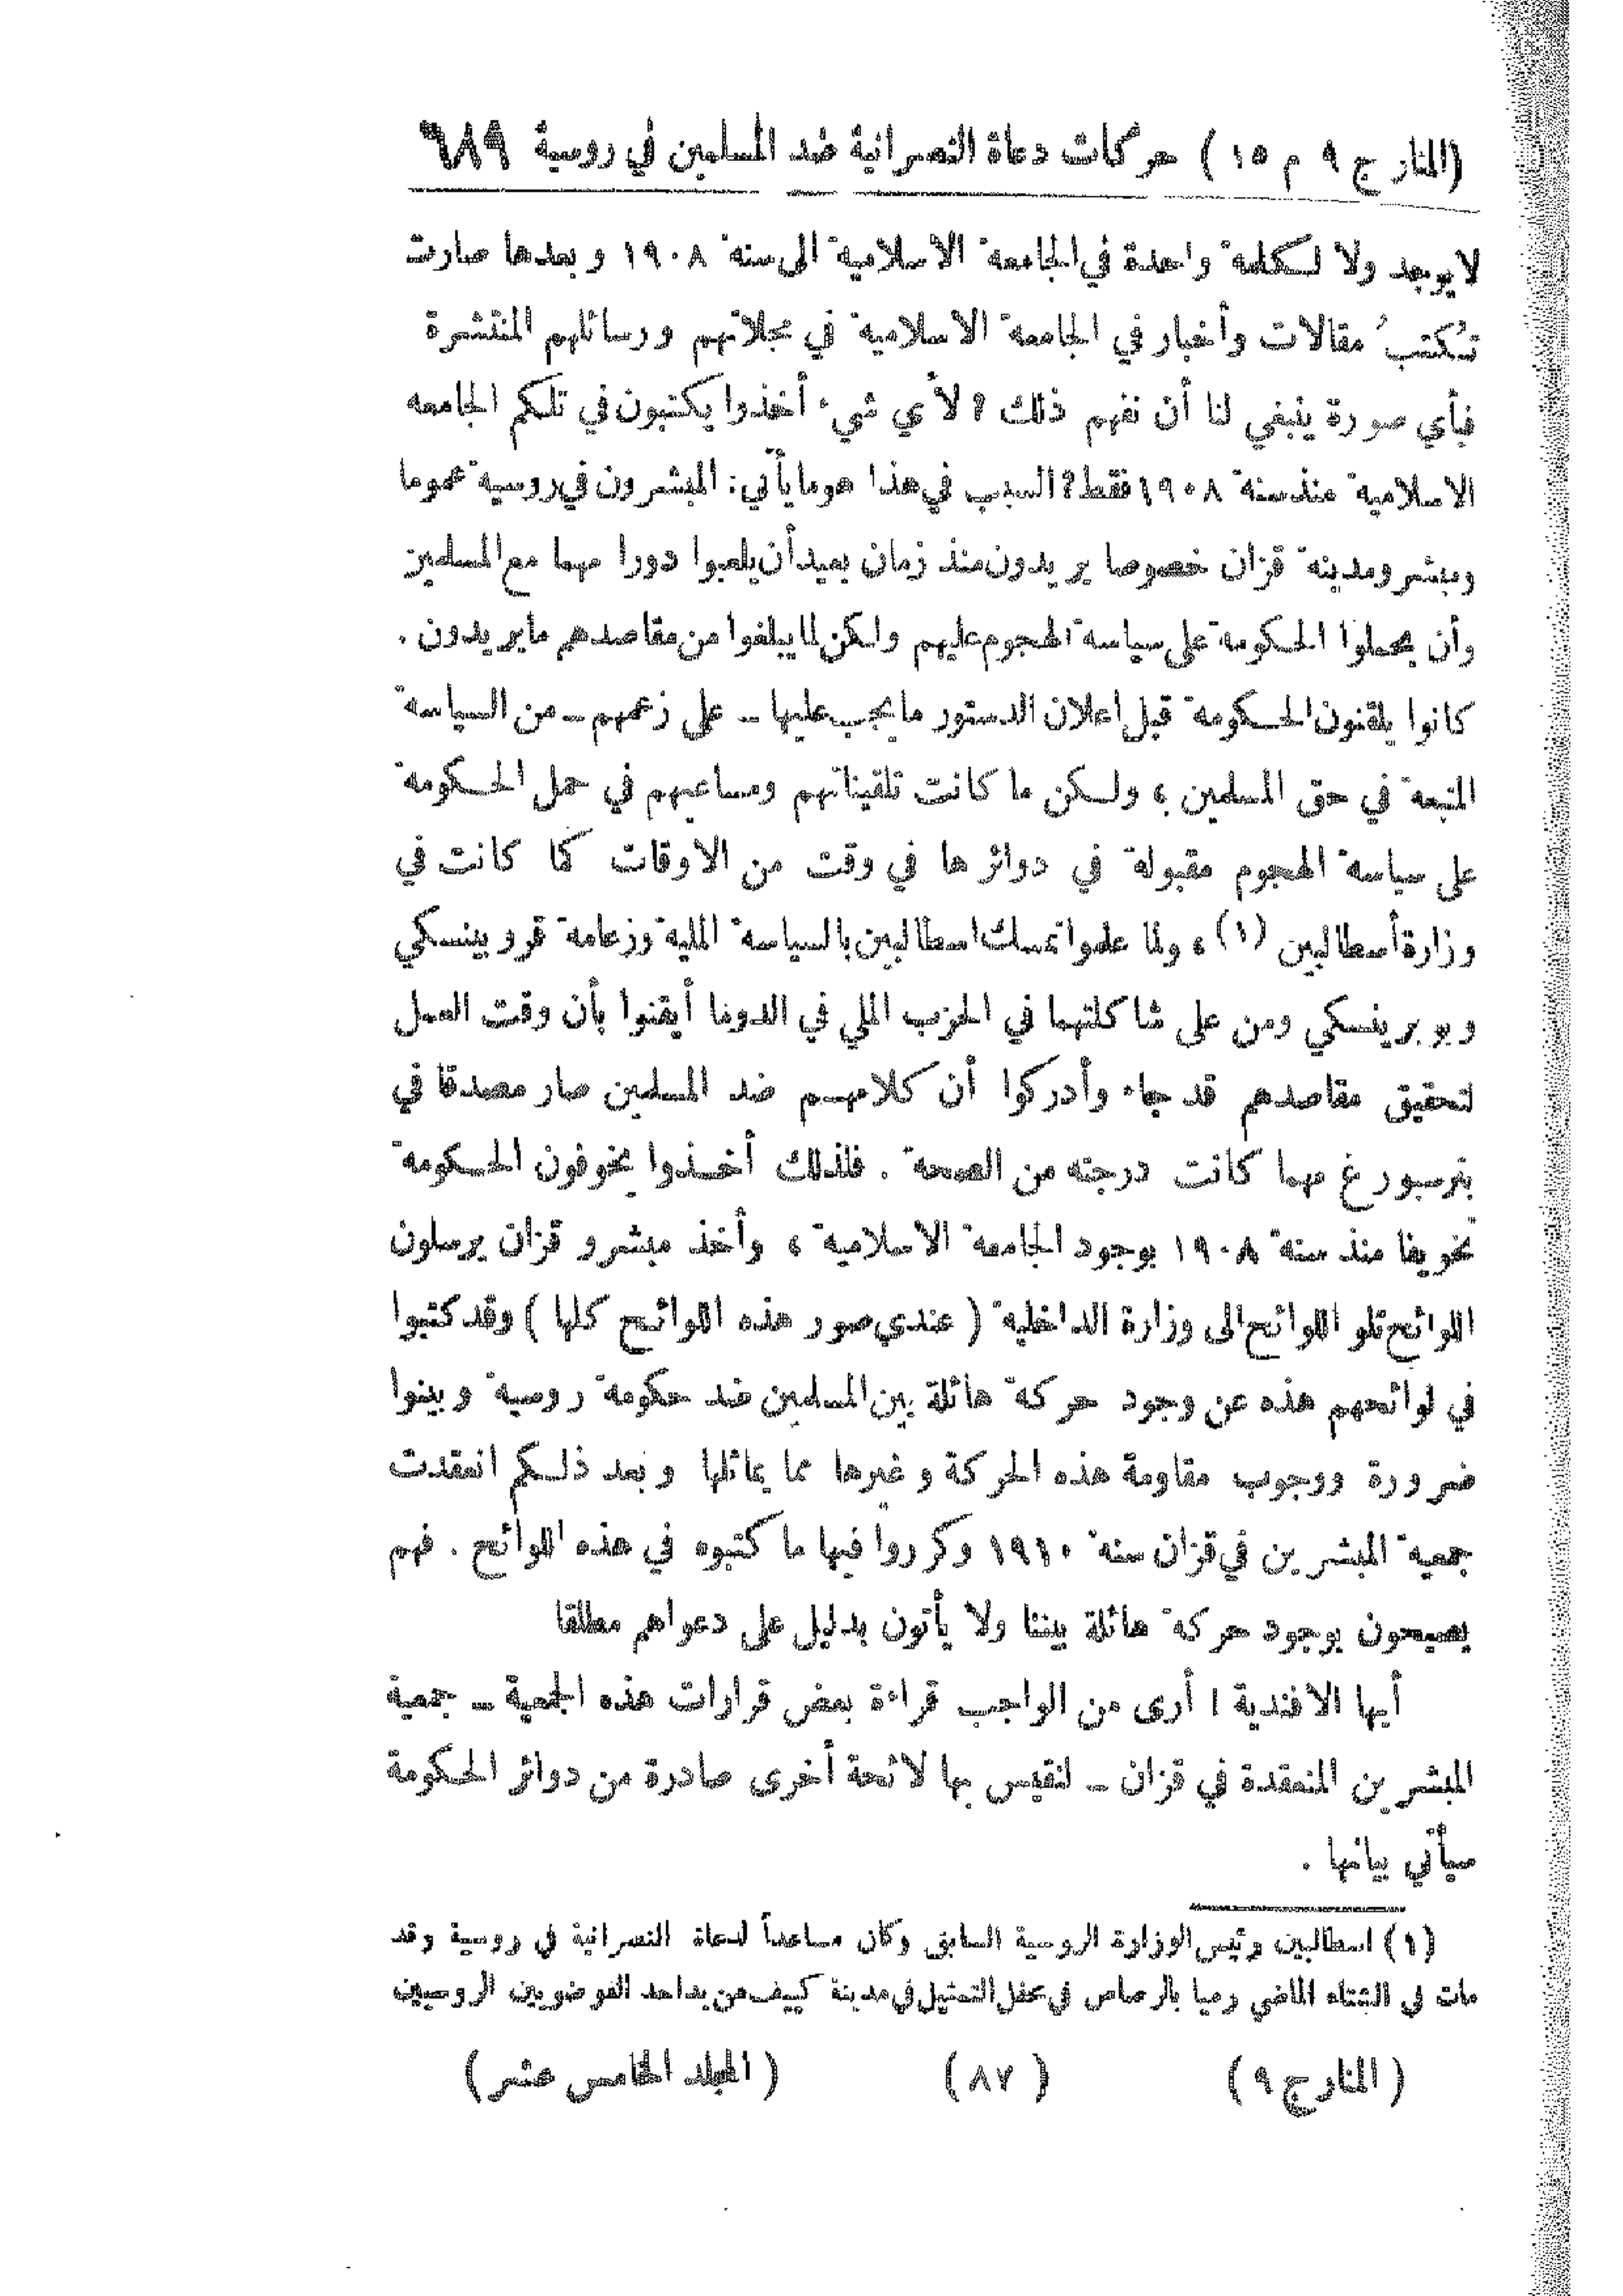 (المنار ج ٩ م ١٥ ) حركات دعاة النصرانية ضد المسلمين في روسية ٦٨٩
لا يوجد ولا لكلمة واحدة في الجامعة الاسلامية الى سنة ١٩٠٨ وبعدها صارت
تُكتبُ مقالات وأخبار في الجامعة الاسلامية في مجلاتهم ورسائلهم المنتشرة
فبأي صورة ينبغي لنا أن نفهم ذلك ؟ لأي شيء أخذوا يكتبون في تلكم الجامعه
الاسلامية منذ سنة ١٩٠٨ فقط؟ السبب في هذا هو ما يأتي: المبشرون في روسية عموما
ومبشرو مدينة قزان خصوصا يريدون منذ زمان بعيد أن يلعبوا دورا مهما مع المسلمين
وأن يحملوا الحكومة على سياسة الهجوم عليهم ولكن لما يبلغوا من مقاصدهم ما يريدون .
كانوا يلقنون الحكومة قبل اعلان الدستور ما يجب عليها – على زعمهم – من السياسة
المتبعة في حق المسلمين ، ولكن ما كانت تلقيناتهم ومساعيهم في حمل الحكومة
على سياسة الهجوم مقبولة في دوائرها في وقت من الاوقات كما كانت في
وزارة أسطاليين (١) ، ولما علموا تمسك اسطاليين بالسياسة الملية وزعامة قروبينسكي
وبوبرينسكي ومن على شاكلتهما في الحزب الملي في الدوما أيقنوا بأن وقت العمل
لتحقيق مقاصدهم قد جاء وأدركوا أن كلامهم ضد المسلمين صار مصدقا في
بترسبورغ مهما كانت درجته من الصحة . فلذلك أخذوا يخوفون الحكومة
تخويفا منذ سنة ١٩٠٨ بوجود الجامعة الاسلامية ، وأخذ مبشرو قزان يرسلون
اللوائح تلو اللوائح الى وزارة الداخلية ( عندي صور هذه اللوائح كلها ) وقد كتبوا
في لوائحهم هذه عن وجود حركة هائلة بين المسلمين ضد حكومة روسية وبينوا
ضرورة ووجوب مقاومة هذه الحركة وغيرها مما يماثلها وبعد ذلكم انعقدت
جمعية المبشرين في قزان سنة ١٩١٠ وكرروا فيها ما كتبوه في هذه اللوائح . فهم
يصيحون بوجود حركة هائلة بيننا ولا يأتون بدليل على دعواهم مطلقا
أيها الافندية ! أرى من الواجب قراءة بعض قرارات هذه الجمعية – جمعية
المبشرين المنعقدة في قزان – لنقيس بها لائحة أخرى صادرة من دوائر الحكومة
سيأتي بيانها .
(١) اسطاليين رئيس الوزارة الروسية السابق وكان مساعداً لدعاة النصرانية في روسية وقد
مات في الشتاء الماضي رميا بالرصاص في محفل التمثيل في مدينة كييف من يد احد الفوضويين الروسيين
(المنار ج ٩) (٨٧) (المجلد الخامس عشر)